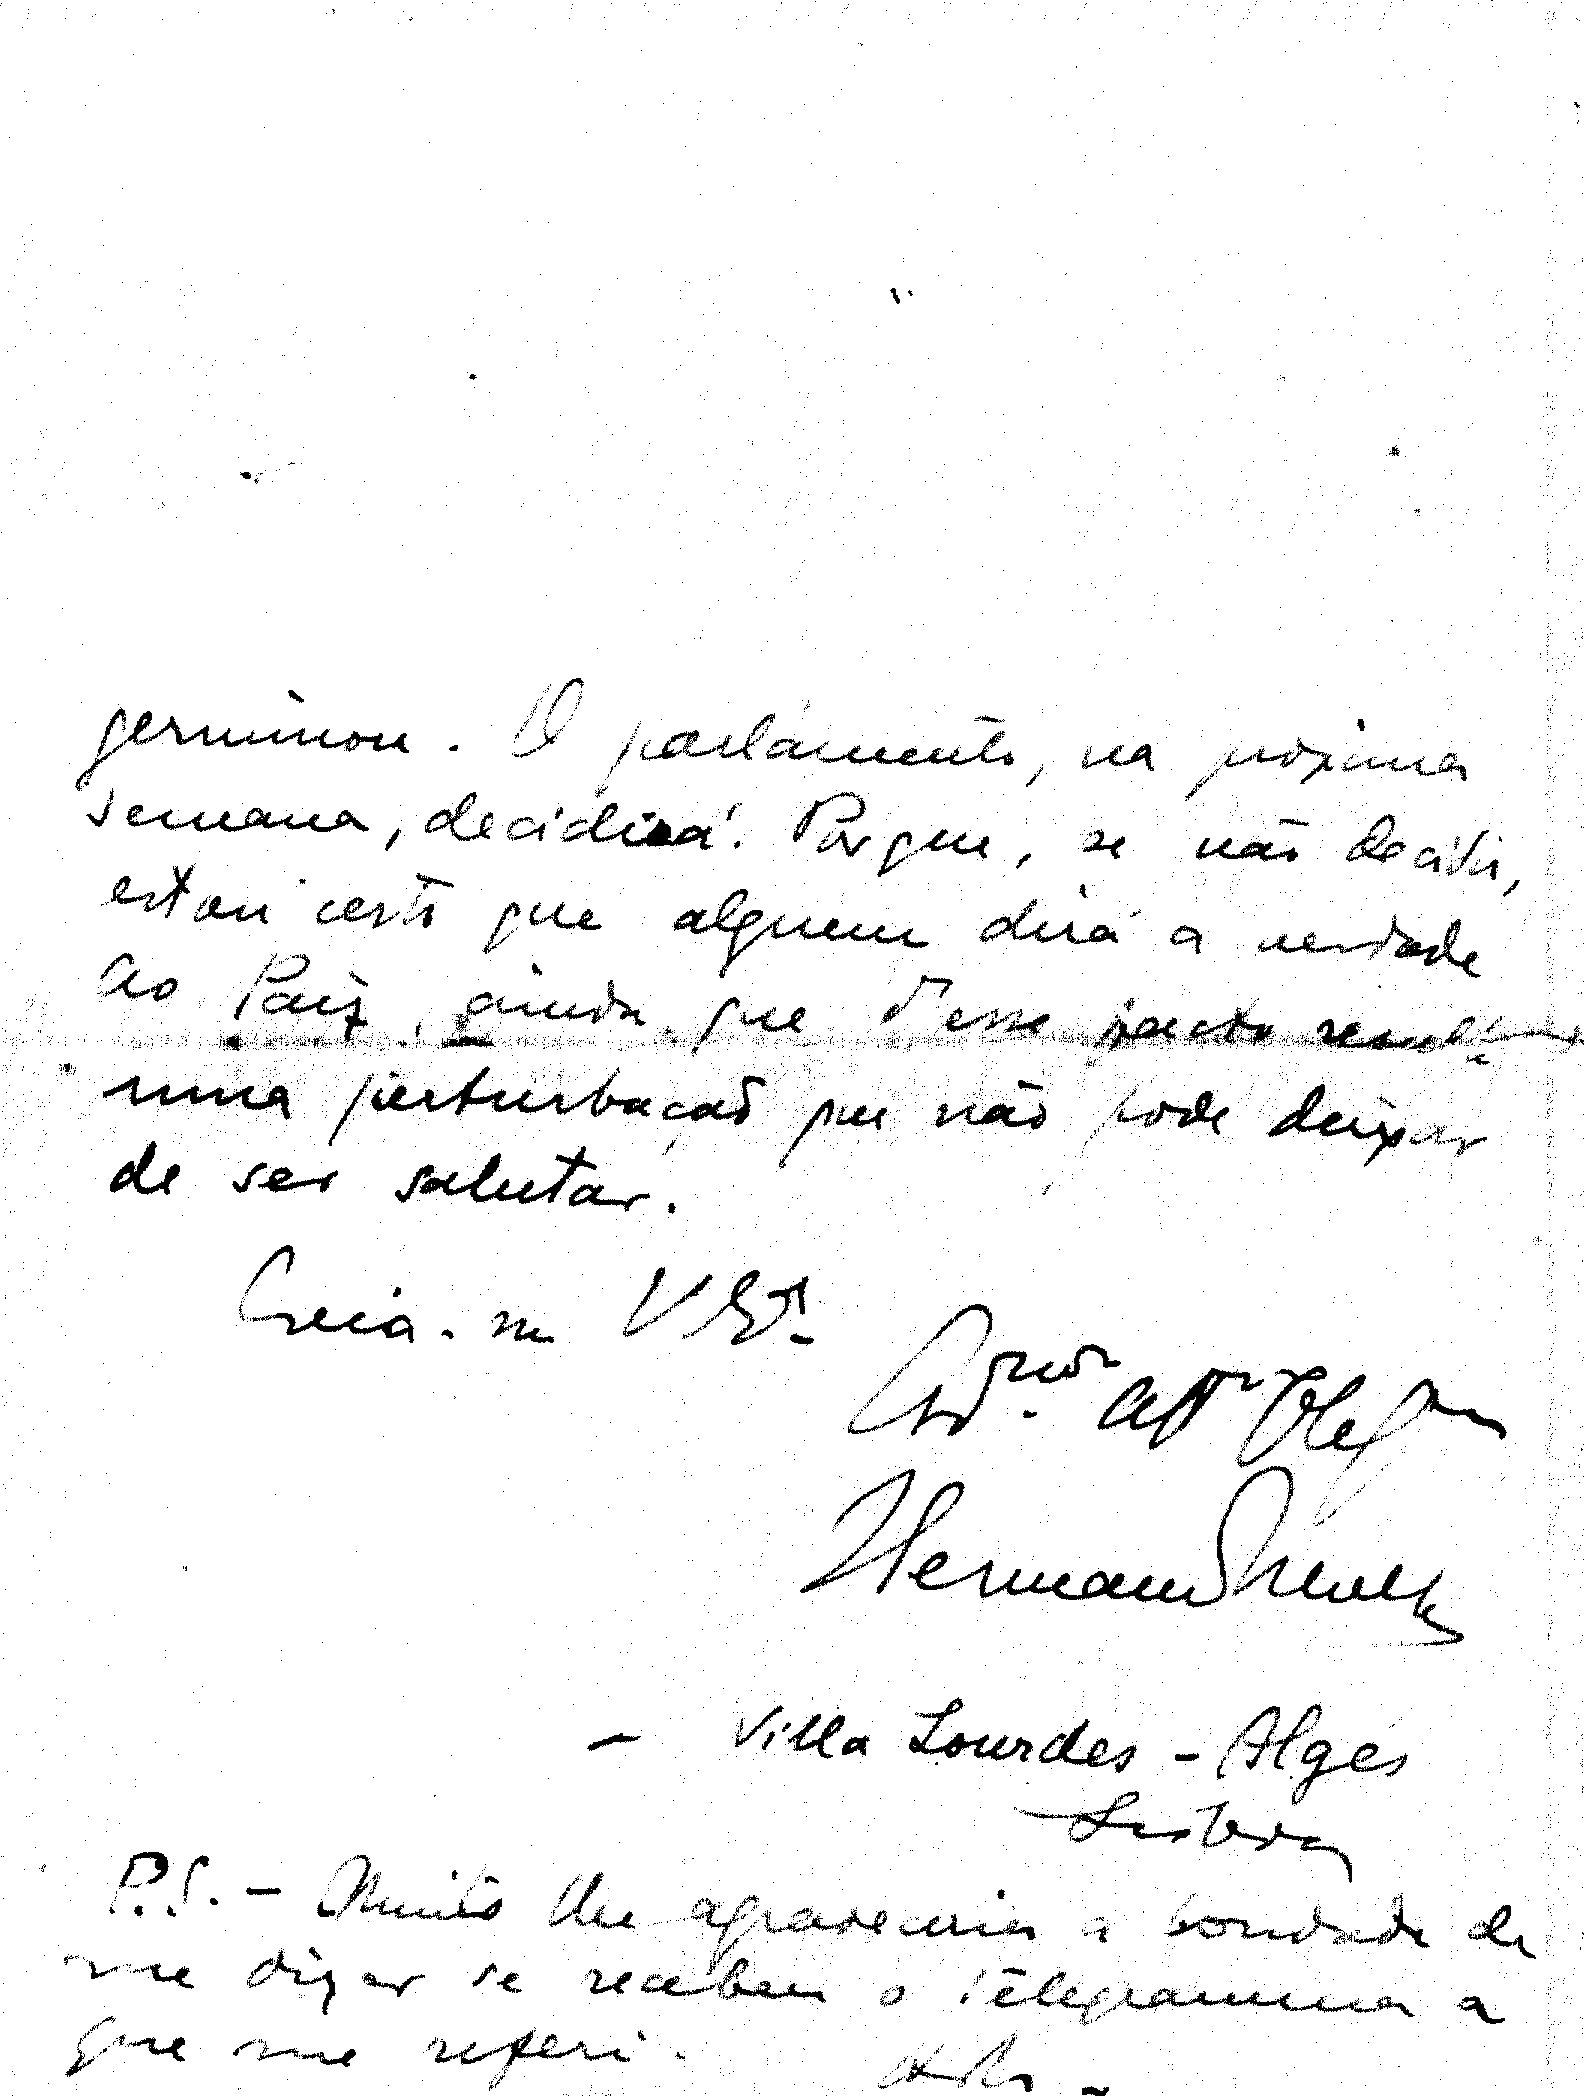 germinou. O parlamento, na proxima
semana, decidirá. Porque, se não decidir,
estou certo que alguem dirá a verdade
ao Paiz, ainda que d'esse facto resulte
uma perturbação que não pode deixar
de ser salutar.
Creia-me V. Ex.ª
Hermano Neves
- Villa Lourdes - Algés
Lisboa
P.S. - Muito lhe agradeceria a bondade de
me dizer se recebeu o telegramma a
que me referi.